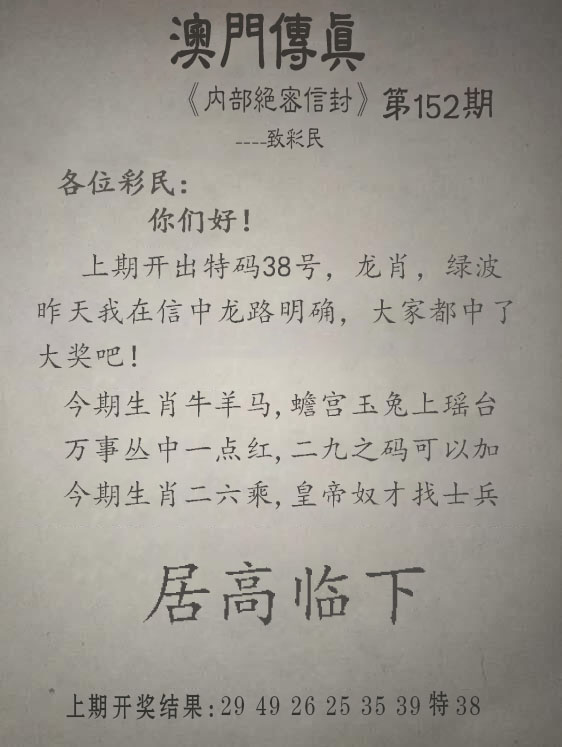 澳門傳真
《内部絕密信封》第152期
----致彩民
各位彩民：
你们好！
上期开出特码38号，龙肖，绿波
昨天我在信中龙路明确，大家都中了
大奖吧！
今期生肖牛羊马,蟾宫玉兔上瑶台
万事丛中一点红,二九之码可以加
今期生肖二六乘,皇帝奴才找士兵
居高临下
上期开奖结果:29 49 26 25 35 39 特 38